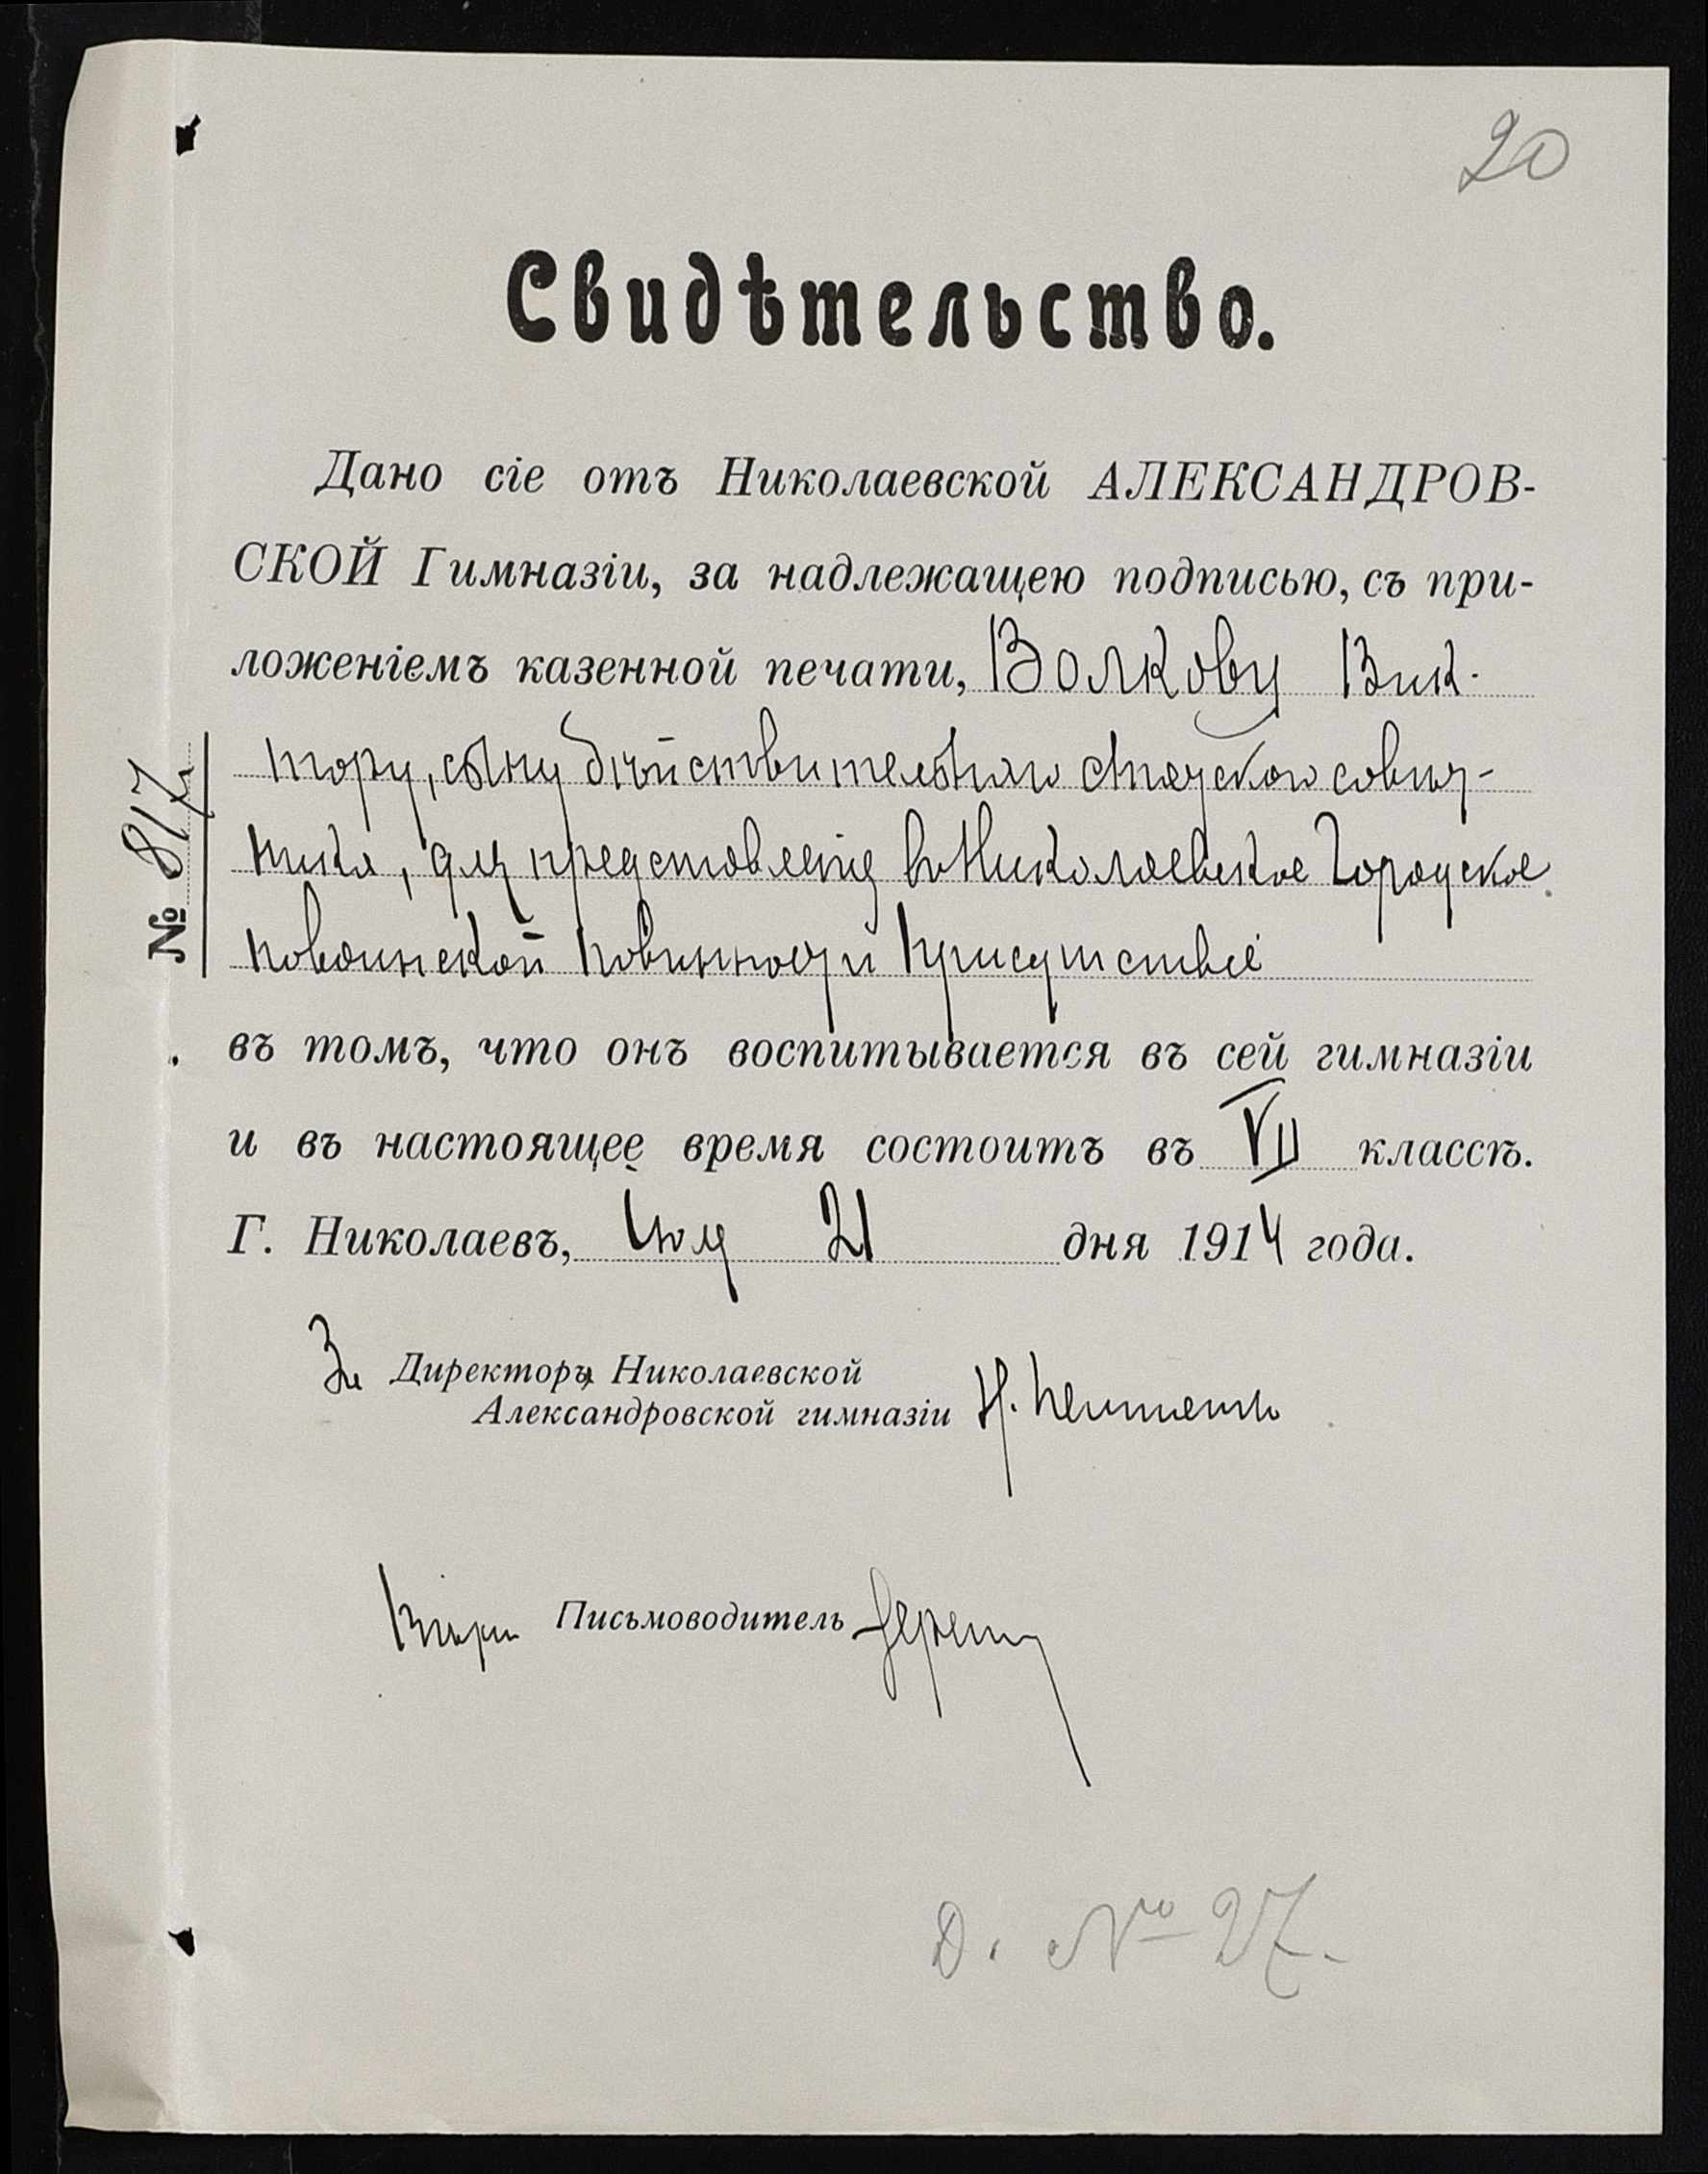 20
Свидѣтельство.
Дано сіе отъ Николаевской АЛЕКСАНДРОВ-
СКОЙ Гимназіи, за надлежащею подписью, съ при-
ложеніемъ казенной печати, Волкову Вик-
тору, сыну дѣйствительнаго статскаго совѣт-
ника, для представленія въ Николаевское Городское
по воинской повинности Присутствіе
№ 817
въ томъ, что онъ воспитывается въ сей гимназіи
и въ настоящее время состоитъ въ VII классѣ.
Г. Николаевъ, Іюля 21 дня 1914 года.
За Директора Николаевской
Александровской гимназіи Н.
Письмоводитель
Д. № 27.